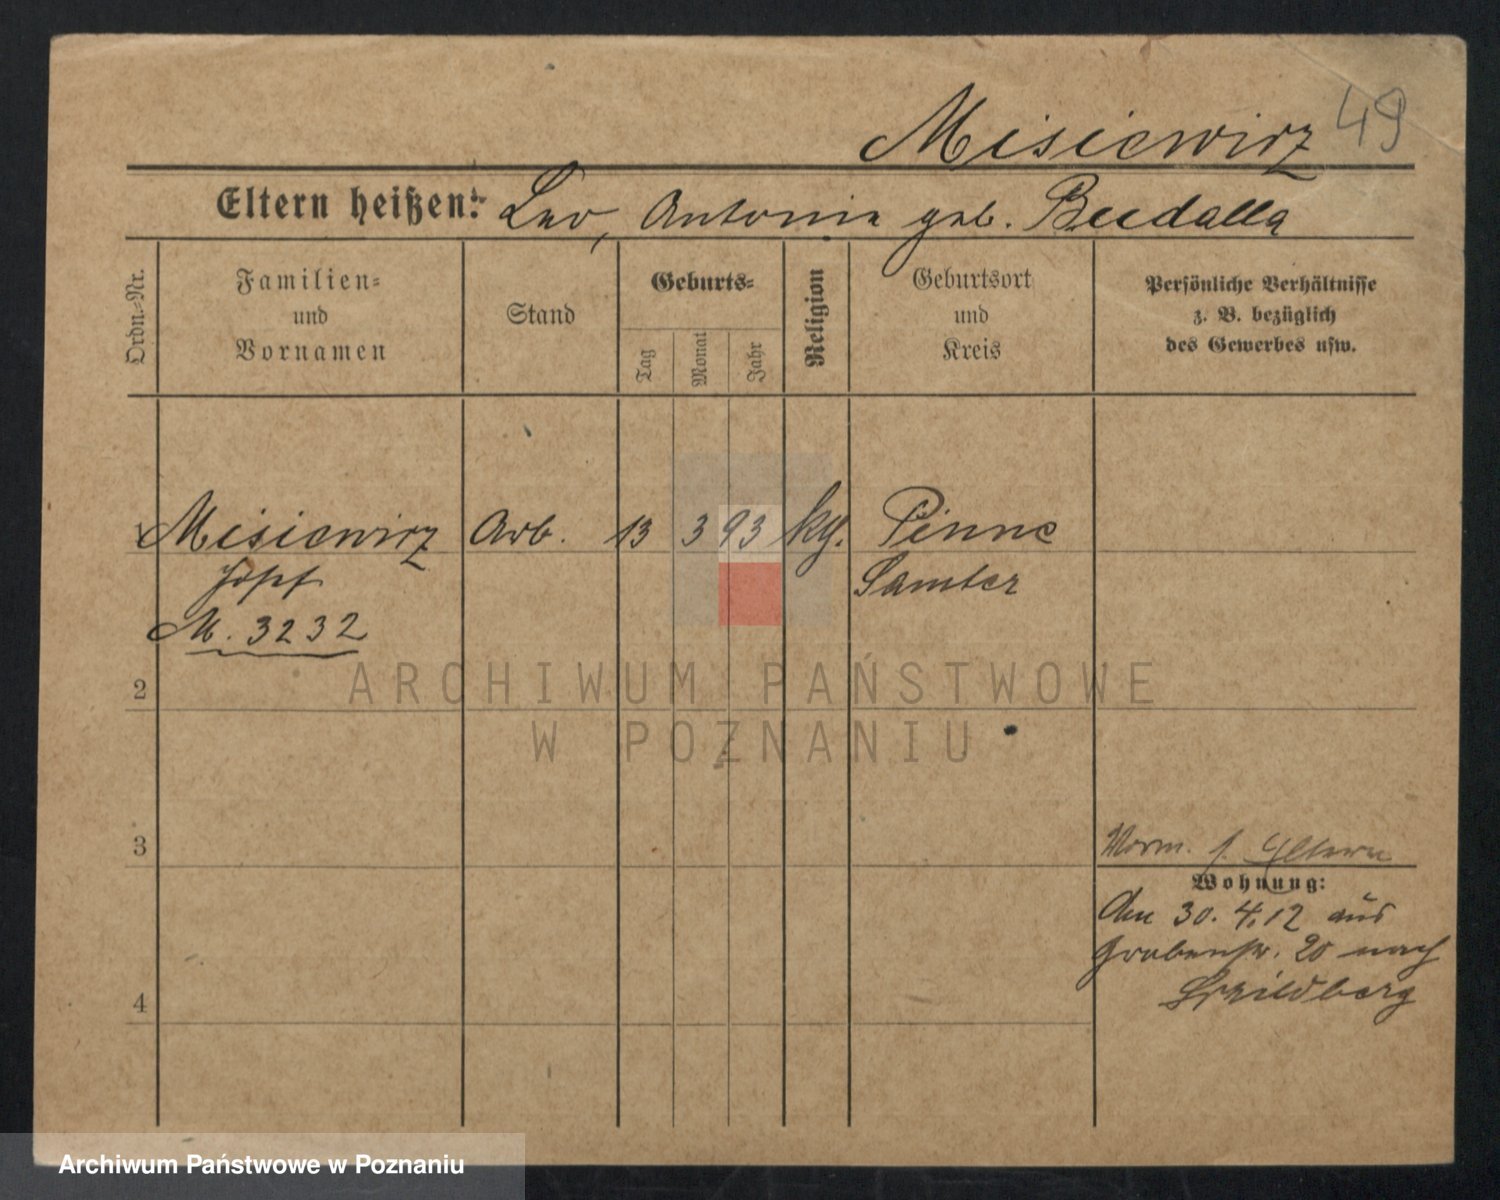 Misiewicz 49
Eltern heißen: Leo, Antonie geb. Budalla
Ordn.-Nr.
Familien-
und
Vornamen
Stand
Geburts-
Tag
Monat
Jahr
Religion
Geburtsort
und
Kreis
Persönliche Verhältnisse
z. B. bezüglich
des Gewerbes usw.
1 Misiewicz Arb. 13 3 93 kg. Pinne
Josef Samter
M. 3232
2
ARCHIWUM PAŃSTWOWE
W POZNANIU
3
Vorm. s. Eltern
Wohnung:
Am 30.4.12 aus
Grabenstr. 20 nach
4
Archiwum Państwowe w Poznaniu